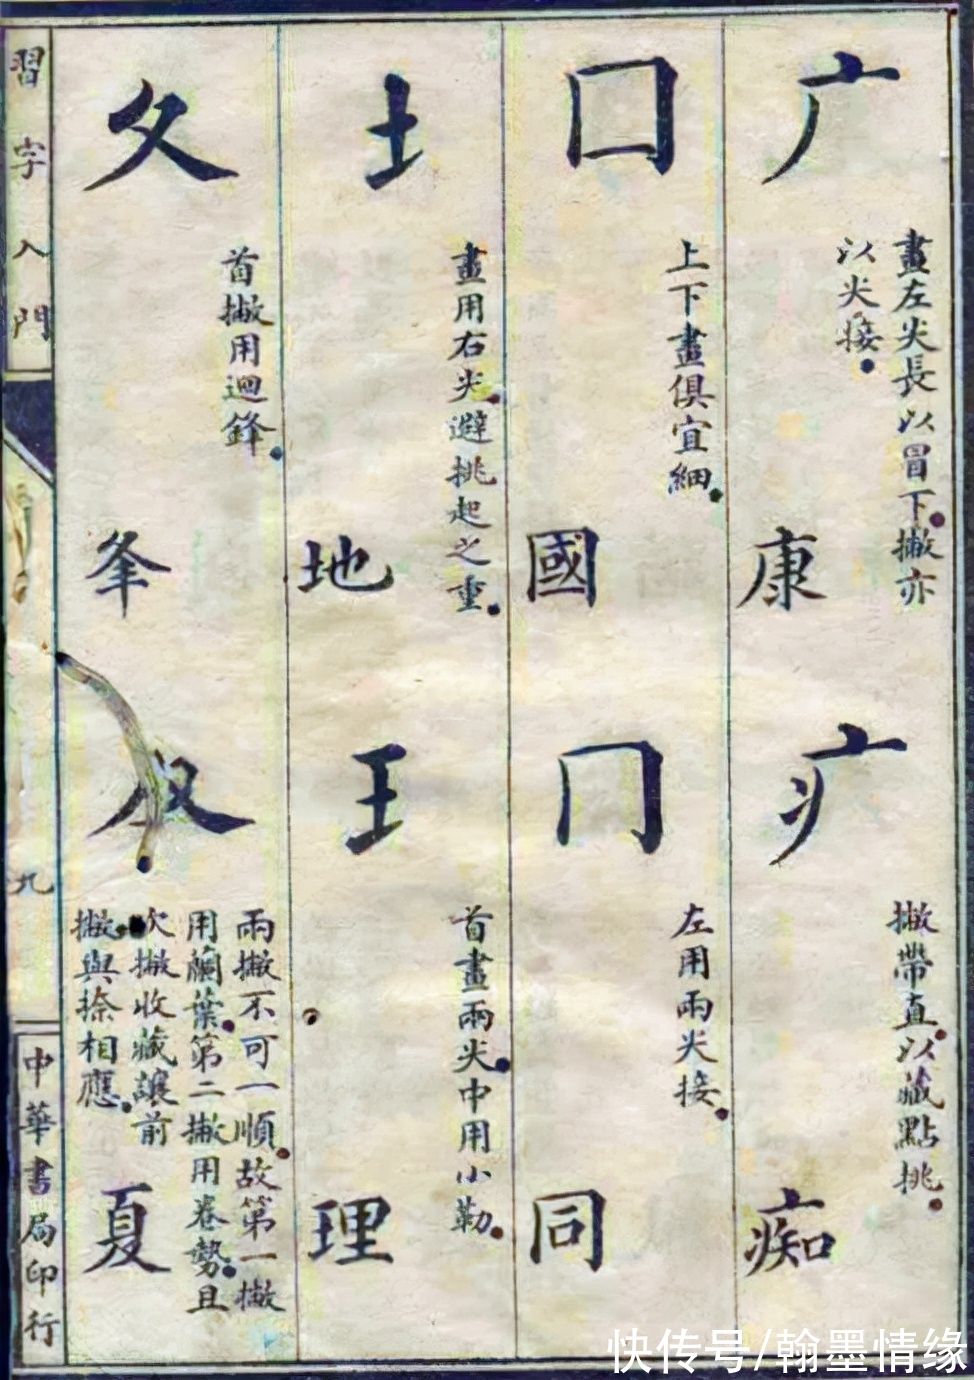 广
畫左尖長以冒下。撇亦
以尖接。
康
疒
撇帶直。以藏點挑。
痴
囗
上下畫俱宜細。
國
冂
左用兩尖接。
同
土
畫用右尖。避挑起之重。
地
王
首畫兩尖。中用小勒。
理
夂
首撇用迴鋒。
夆
兩撇不可一順。故第一撇
用蘭葉。第二撇用卷勢。且
次撇收藏讓前
撇與捺相應。
夏
習字入門
九
中華書局印行
快传号/翰墨情缘